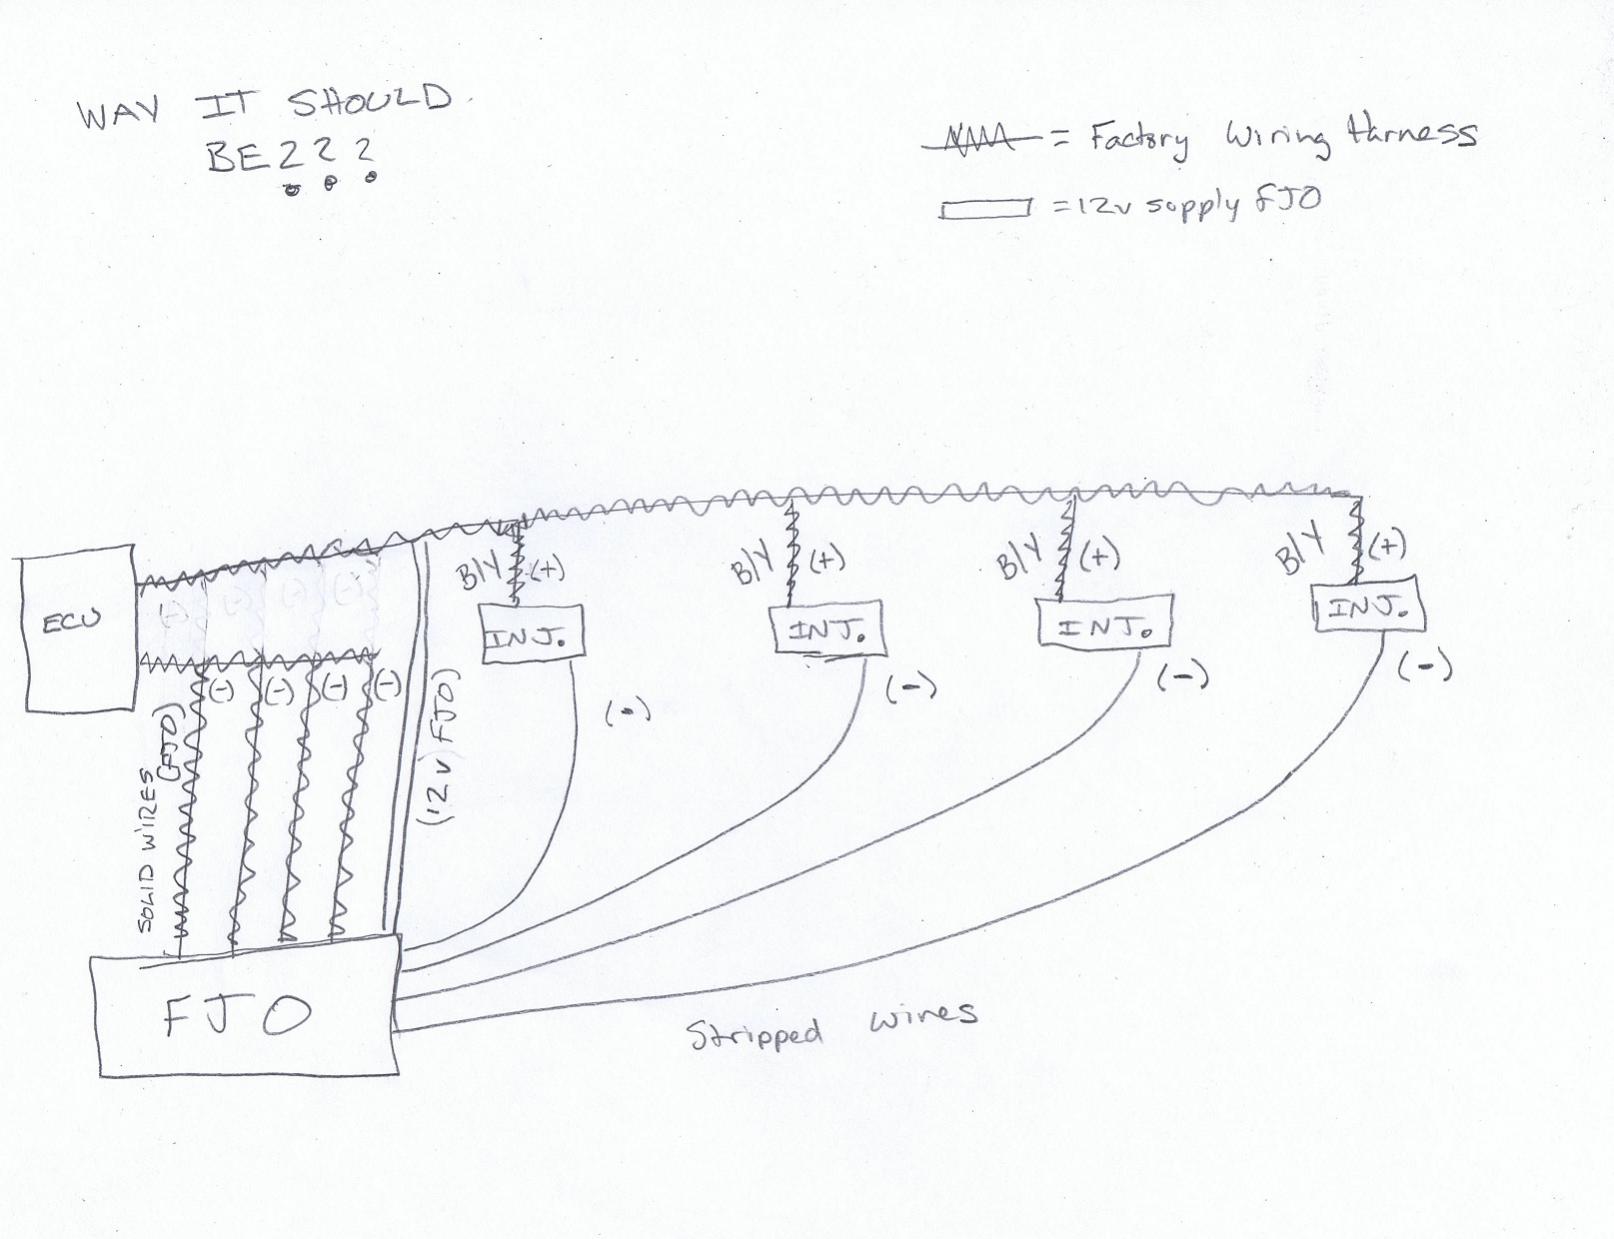 WAY IT SHOULD
BE???
= Factory Wiring Harness
= 12v supply FJO
ECU
(-) (-) (-) (-)
(-) (-) (-) (-)
B/Y (+)
B/Y (+)
B/Y (+)
B/Y (+)
INJ.
INJ.
INJ.
INJ.
(-)
(-)
(-)
(-)
SOLID WIRES (FJO)
(12v FJO)
FJO
Stripped wires